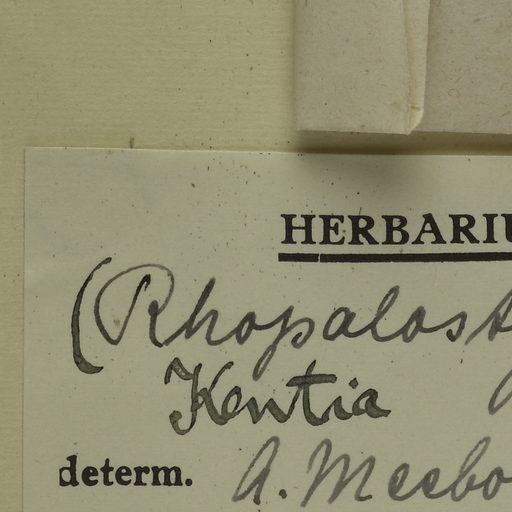 HERBARIU
(Rhopalost
Kentia
determ. A. Meebo